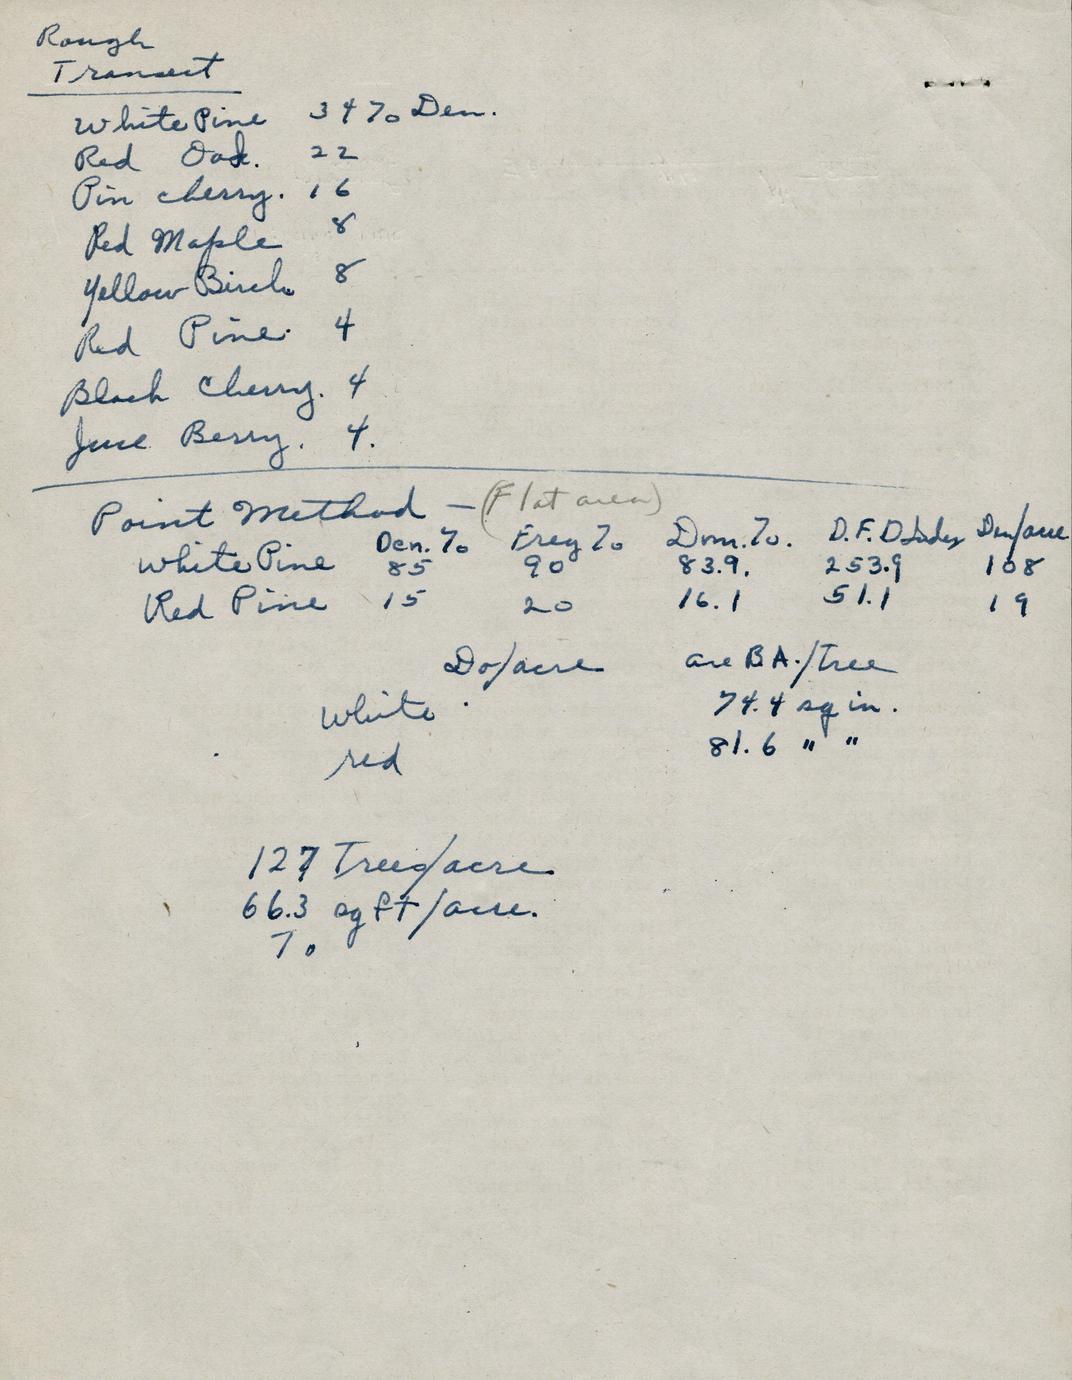 Rough
Transect
White Pine 34% Den.
Red Oak. 22
Pin cherry. 16
Red Maple 8
Yellow Birch 8
Red Pine. 4
Black Cherry. 4
June Berry. 4.
Point Method - (Flat area)
Den. % Freq % Dom. %. D.F.D Index Den/acre
White Pine 85 90 83.9. 253.9 108
Red Pine 15 20 16.1 51.1 19
Do/acre ave B A./Tree
White 74.4 sq in.
red 81.6 " "
127 Trees/acre
66.3 sq ft/acre.
%